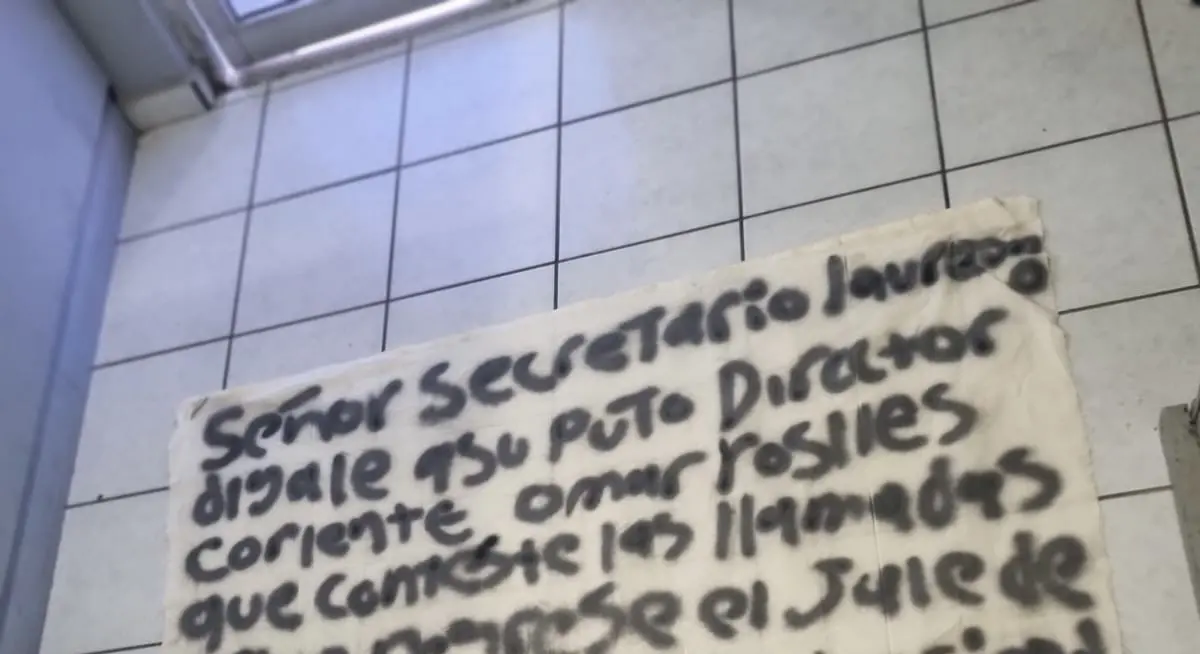 Señor Secretario laureano
digale asu puto Director
coriente omar rosiles
que conteste las llamadas
el Jule de